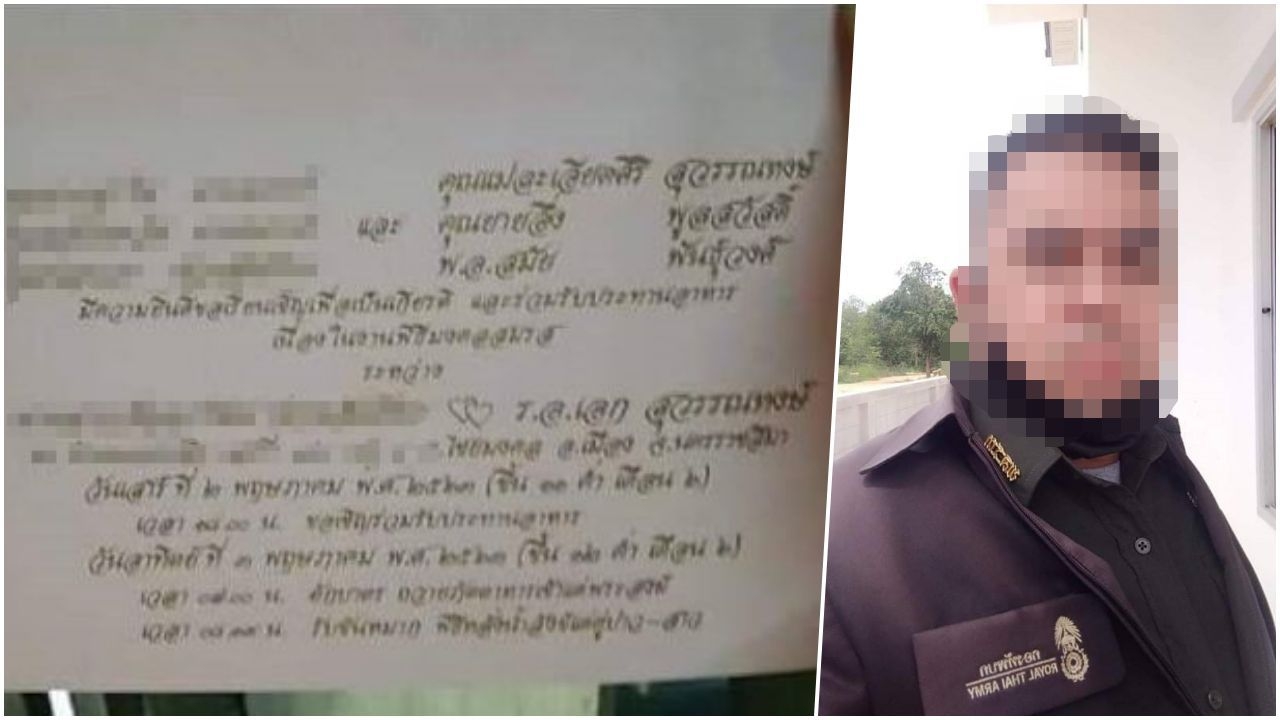 คุณแม่ละเอียดศิริ สุวรรณหงษ์
และ คุณยายลึ่ง พูลสวัสดิ์
พ.อ.สมัย พันธุ์วงศ์
มีความยินดีขอเรียนเชิญเพื่อเป็นเกียรติ และร่วมรับประทานอาหาร
เนื่องในงานพิธีมงคลสมรส
ระหว่าง
ร.อ.เอก สุวรรณหงษ์
ไชยมงคล อ.เมือง จ.นครราชสีมา
วันเสาร์ ที่ ๒ พฤษภาคม พ.ศ.๒๕๖๓ (ขึ้น ๑๐ ค่ำ เดือน ๖)
เวลา ๑๘.๐๐ น. ขอเชิญร่วมรับประทานอาหาร
วันอาทิตย์ ที่ ๓ พฤษภาคม พ.ศ.๒๕๖๓ (ขึ้น ๑๑ ค่ำ เดือน ๖)
เวลา ๐๗.๐๐ น. ตักบาตร ถวายภัตตาหารเช้าแด่พระสงฆ์
เวลา น. รับขันหมาก พิธีหลั่งน้ำสังข์แด่คู่บ่าว-สาว
กองทัพบก
ROYAL THAI ARMY